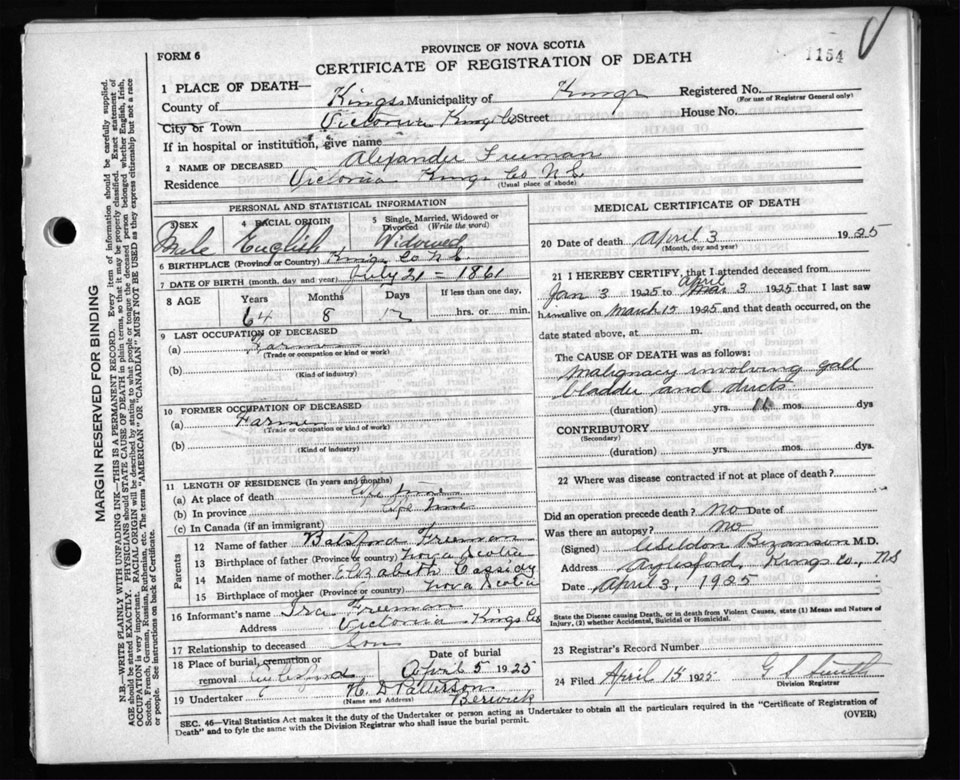 1154
FORM 6
PROVINCE OF NOVA SCOTIA
CERTIFICATE OF REGISTRATION OF DEATH
1 PLACE OF DEATH—
County of Kings Municipality of Kings Registered No.
(For use of Registrar General only)
City or Town Victoria Kings Co Street House No.
If in hospital or institution, give name
2 NAME OF DECEASED Alexander Freeman
Residence Victoria Kings Co N.S.
(Usual place of abode)
PERSONAL AND STATISTICAL INFORMATION
3 SEX Male
4 RACIAL ORIGIN English
5 Single, Married, Widowed or Divorced (Write the word) Widowed
6 BIRTHPLACE (Province or Country) Kings Co N.S.
7 DATE OF BIRTH (month, day and year) July 21 = 1861
8 AGE Years Months Days If less than one day,
64 8 12 hrs. or min.
9 LAST OCCUPATION OF DECEASED
(a) Farmer
(Trade or occupation or kind or work)
(b)
(Kind of industry)
10 FORMER OCCUPATION OF DECEASED
(a) Farmer
(Trade or occupation or kind of work)
(b)
(Kind of industry)
11 LENGTH OF RESIDENCE (In years and months)
(a) At place of death Life time
(b) In province Life time
(c) In Canada (if an immigrant)
Parents
12 Name of father Freeman
13 Birthplace of father (Province or country) Nova Scotia
14 Maiden name of mother Elizabeth Cassidy
15 Birthplace of mother (Province or country) Nova Scotia
16 Informant's name Ira Freeman
Address Victoria Kings Co
17 Relationship to deceased Son
18 Place of burial, cremation or removal Aylesford
Date of burial April 5 1925
19 Undertaker N. D Patterson
(Name and Address) Berwick
MEDICAL CERTIFICATE OF DEATH
20 Date of death April 3 1925
(Month, day and year)
21 I HEREBY CERTIFY, that I attended deceased from
Jan 3 1925 to April 3 1925 that I last saw
him alive on March 15 1925 and that death occurred, on the
date stated above, at m.
The CAUSE OF DEATH was as follows:
Malignacy involving gall
bladder and ducts
(duration) yrs. 11 mos. dys
CONTRIBUTORY
(Secondary)
(duration) yrs. mos. dys.
22 Where was disease contracted if not at place of death?
Did an operation precede death? No Date of
Was there an autopsy? No
(Signed) Weldon Bezanson M.D.
Address Aylesford, Kings Co., NS
Date April 3, 1925
State the Disease causing Death, or in death from Violent Causes, state (1) Means and Nature of
Injury, (2) whether Accidental, Suicidal or Homicidal.
23 Registrar's Record Number
24 Filed April 15 1925 G S Smith
Division Registrar
SEC. 46—Vital Statistics Act makes it the duty of the Undertaker or person acting as Undertaker to obtain all the particulars required in the "Certificate of Registration of
Death" and to fyle the same with the Division Registrar who shall issue the burial permit.
(OVER)
MARGIN RESERVED FOR BINDING
N.B.—WRITE PLAINLY WITH UNFADING INK—THIS IS A PERMANENT RECORD. Every item of information should be carefully supplied.
AGE should be stated EXACTLY. PHYSICIANS should STATE CAUSE OF DEATH in plain terms, so that it may be properly classified. Exact statement of
OCCUPATION is very important. RACIAL ORIGIN will be described by stating to what people or tongue the deceased person belonged whether English, Irish,
Scotch, French, German, Russian, Ruthenian, etc. The terms "AMERICAN" OR "CANADIAN" MUST NOT BE USED as they express citizenship but not a race
or people. See instructions on back of Certificate.